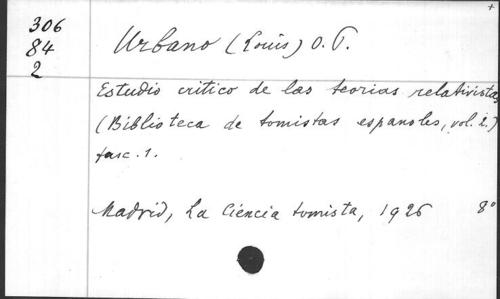 306
84
2
Urbano (Louis) O.P.
Estudio critico de las teorias relativistas
(Biblioteca de tomistas espanoles, vol. 2.)
fasc. 1.
Madrid, La Ciencia tomista, 1926 8°